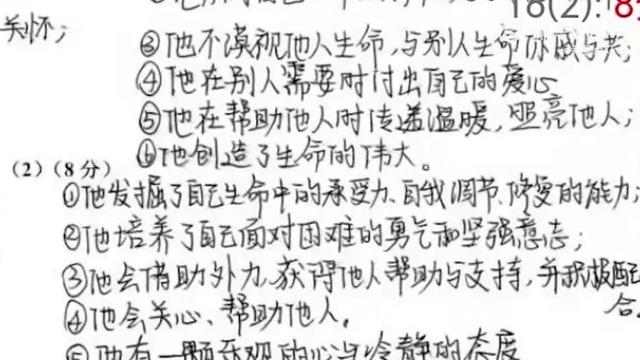 18(2): 8
关怀；
③他不漠视他人生命，与别人生命休戚与共；
④他在别人需要时付出自己的爱心
⑤他在帮助他人时传递温暖，照亮他人；
⑥他创造了生命的伟大。
(2)(8分)
①他发掘了自己生命中的承受力、自我调节、修复的能力；
②他培养了自己面对困难的勇气和坚强意志；
③他会借助外力，获得他人帮助与支持，并积极配
合。
④他会关心、帮助他人。
⑤他有一颗乐观的心与冷静的态度